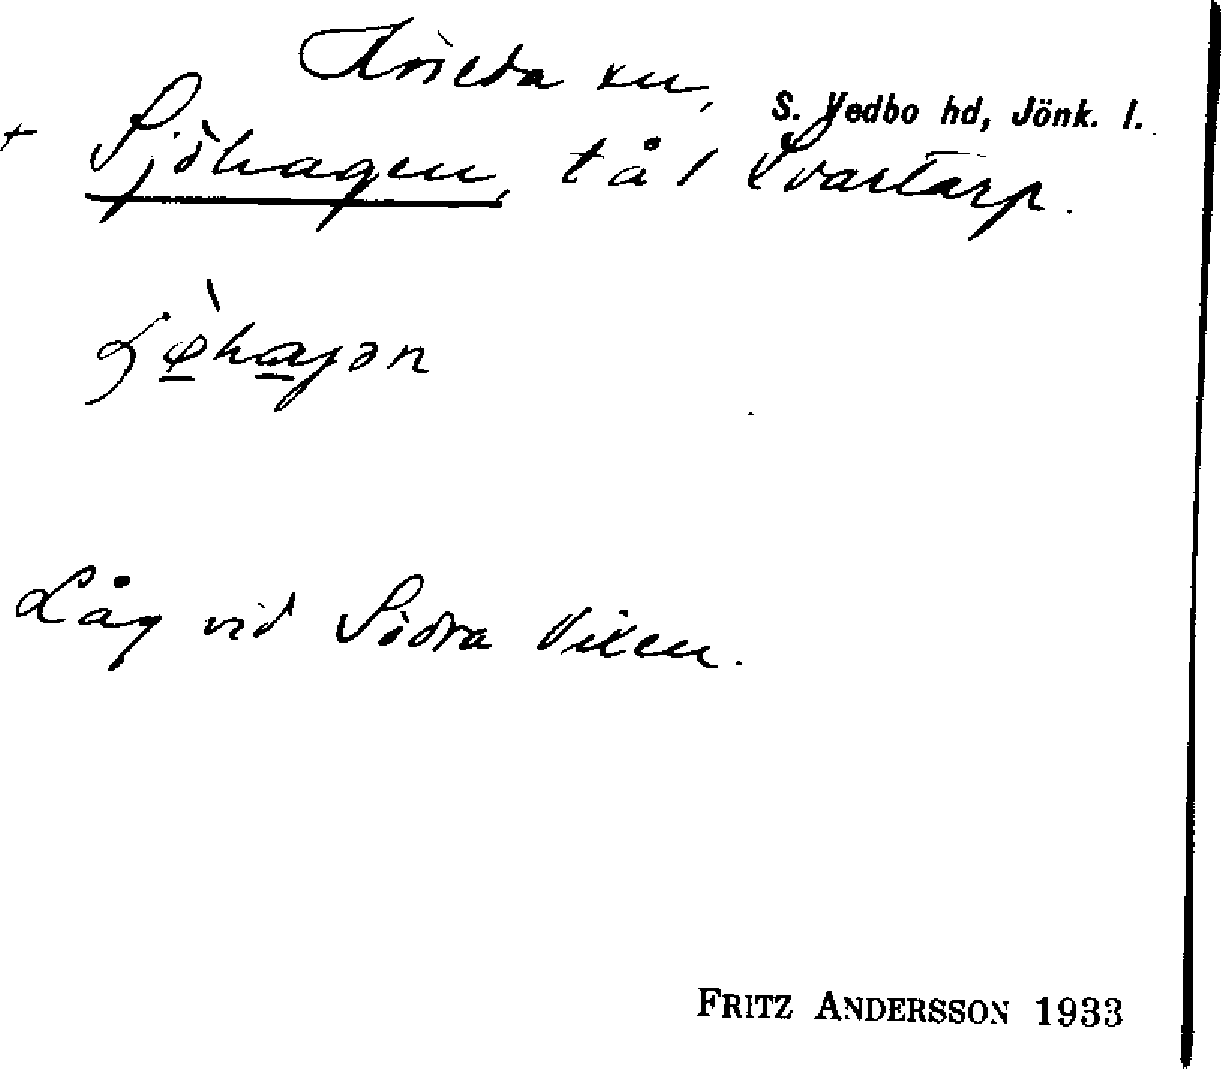 Hvicta sn, S. Vedbo hd, Jönk. l.
+ Sjöhagen, t å l Svartarp.
ʃø̱̀ha̱gən
Låg vid Södra Vixen.
FRITZ ANDERSSON 1933